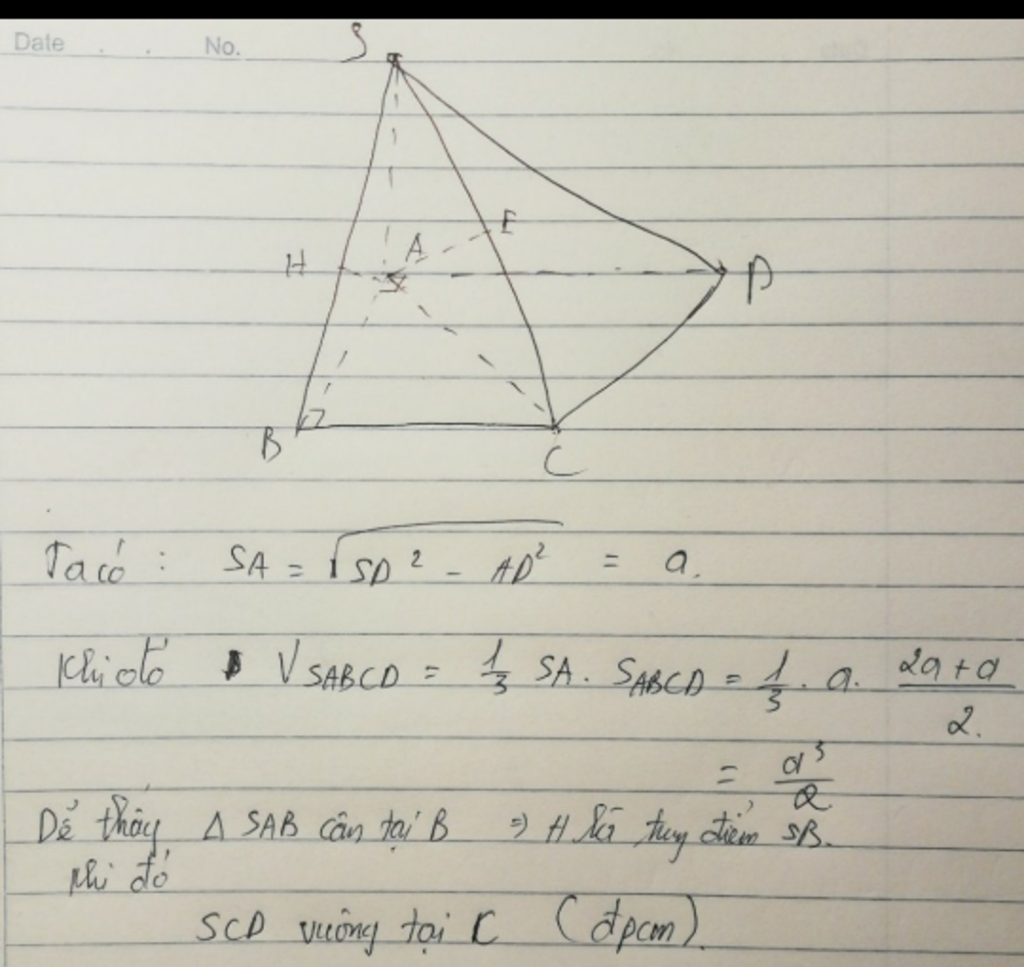 Date . . No.
S
E
A
H
D
B
C
Ta có : SA = √(SD² - AD²) = a.
Khi đó V SABCD = 1/3 SA. SABCD = 1/3 . a. (2a + a)/2.
= a³/2
Dễ thấy Δ SAB cân tại B => H là tuy điểm SB.
Khi đó
SCD vuông tại C (đpcm).